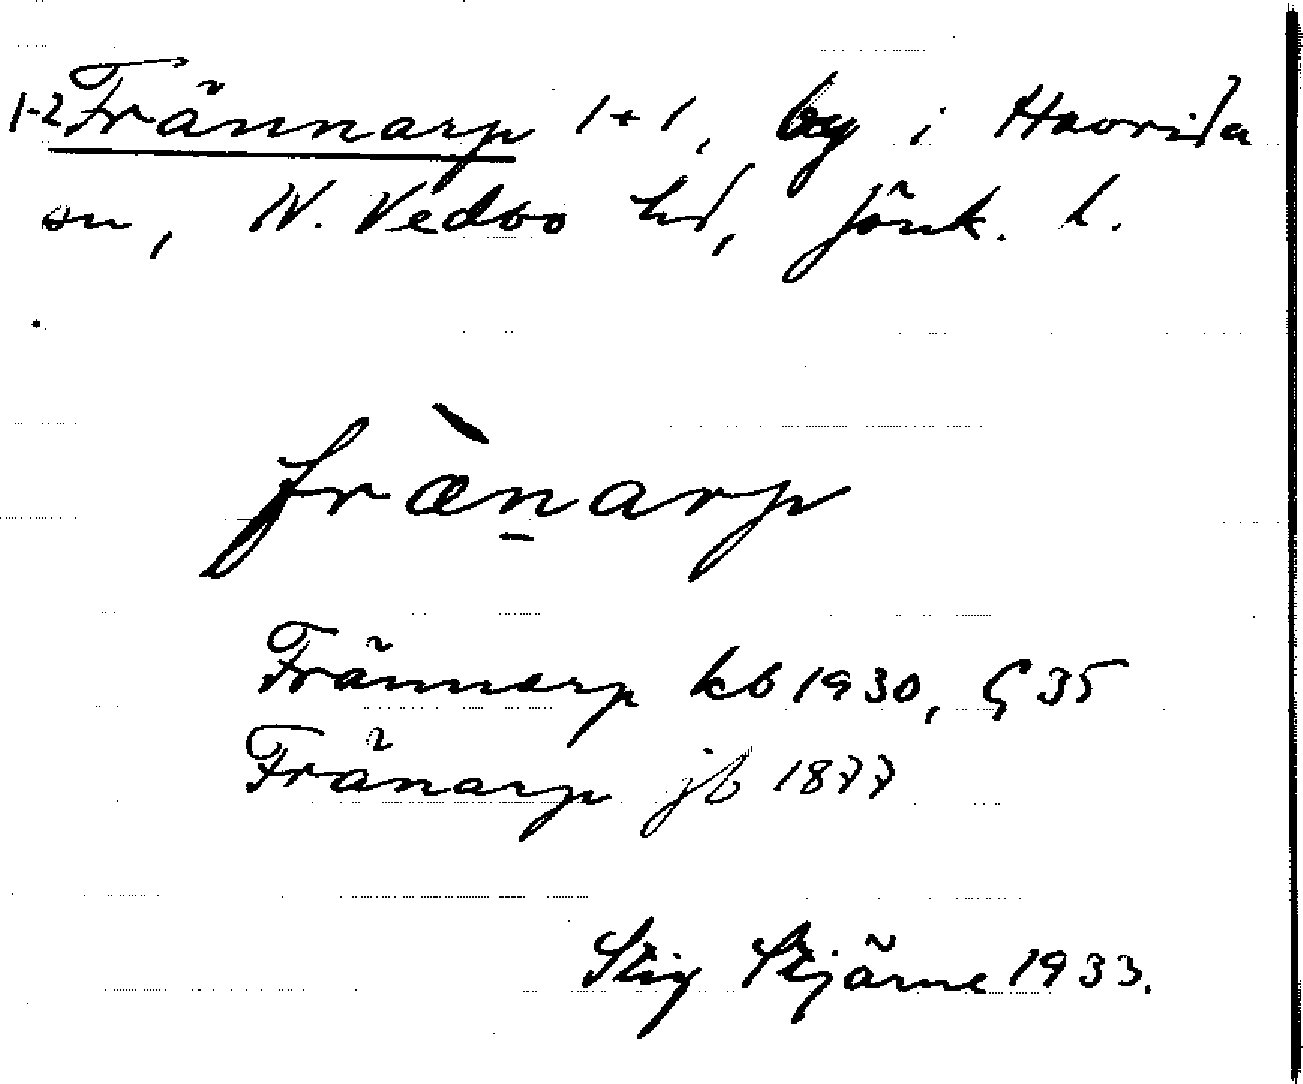 1-2 Frännarp 1+1, by i Haurida
sn, N. Vedbo hd, Jönk. l.
fræ̀n̠arp
Frännarp kb 1930, G 35
Fränarp jb 1877
Stig Stjärne 1933.